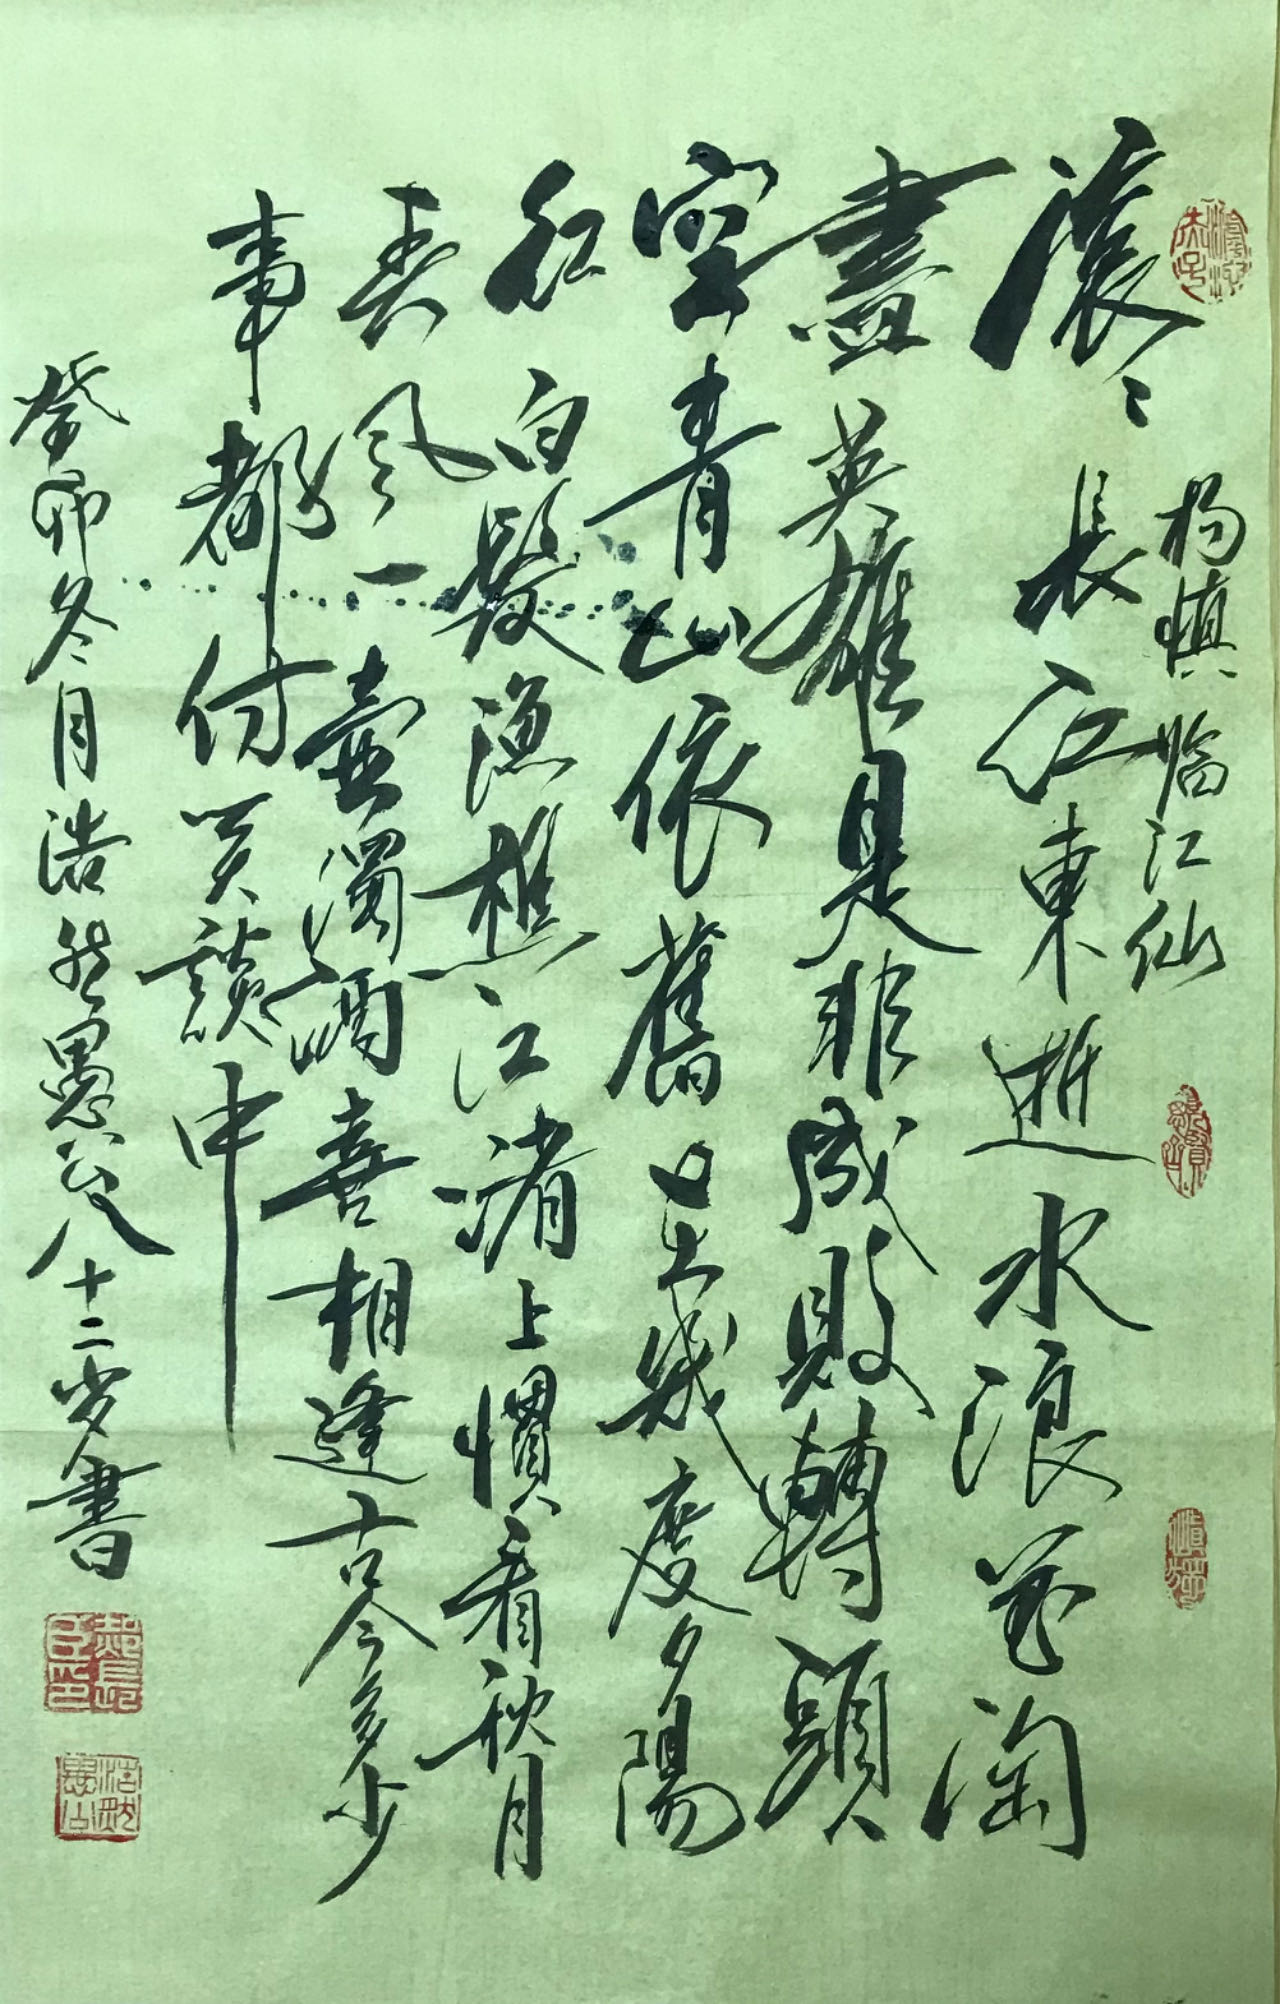 楊慎臨江仙
滾〻長江東逝水浪花淘
盡英雄是非成敗轉頭
空青山依舊在幾度夕陽
紅白髮漁樵江渚上慣看秋月
春風一壺濁酒喜相逢古今多少
事都付笑談中
癸卯冬月浩然愚公八十二岁書